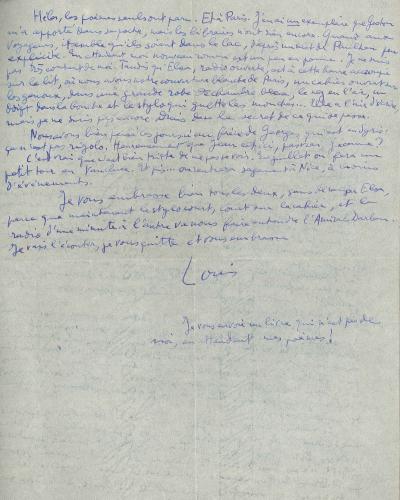 Hélas, les poèmes seuls ont paru. Et à Paris. J'en ai un exemplaire que Gaston
m'a apporté dans sa poche, mais les libraires n'ont rien encore. Quant aux
Voyageurs, il semble qu'ils soient dans le lac, d'après un mot de Paulhan peu
explicite. En attendant mon nouveau roman est un peu en panne. Je ne suis
pas très content de moi. Tandis qu'Elsa, sans ouvrir, est à cette heure accroupie
sur le lit, où nous avons notre couverture blanche de Paris, un cahier ouvert sur
les genoux, dans une grande robe de chambre bleue, le nez en l'air, un
doigt dans la bouche et le stylo qui guette les mouches... Elle a l'air d'écrire
mais je ne suis pas encore dans le secret de ce qui se passe.
Nous avons bien pensé ces jours-ci au frère de Georges, qui est en Syrie.
ça n'est pas rigolo. Heureusement que Jean est ici, pas vrai Jeanne ?
C'est vrai que c'est bien triste de ne pas se voir. En juillet on fera un
petit tour en Vaucluse. Et puis on rentrera sagement à Nice, à moins
d'événements.
Je vous embrasse bien tous les deux, sans déranger Elsa,
parce que maintenant le stylo court, court sur le cahier, et la
radio d'une minute à l'autre va nous faire entendre l'Amiral Darlan.
Je vais l'écouter, je vous quitte et vous embrasse
Louis
Je vous envoie un livre qui n'est pas de
moi, en attendant mes poèmes !